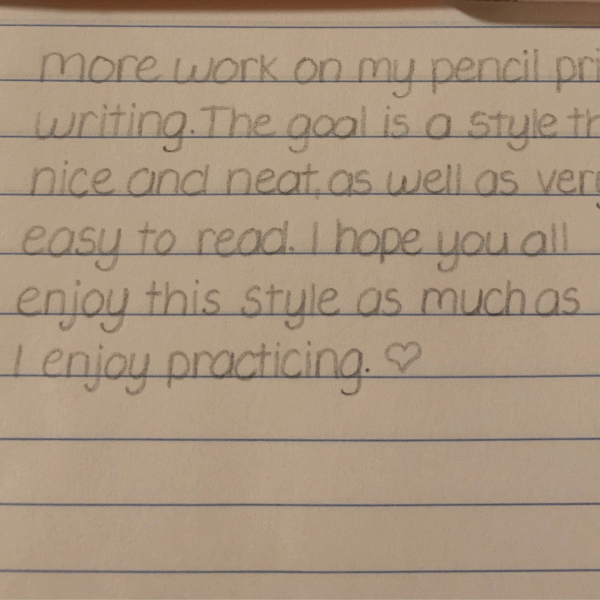 more work on my pencil pri
writing. The goal is a style th
nice and neat, as well as very
easy to read. I hope you all
enjoy this style as much as
I enjoy practicing. ♡